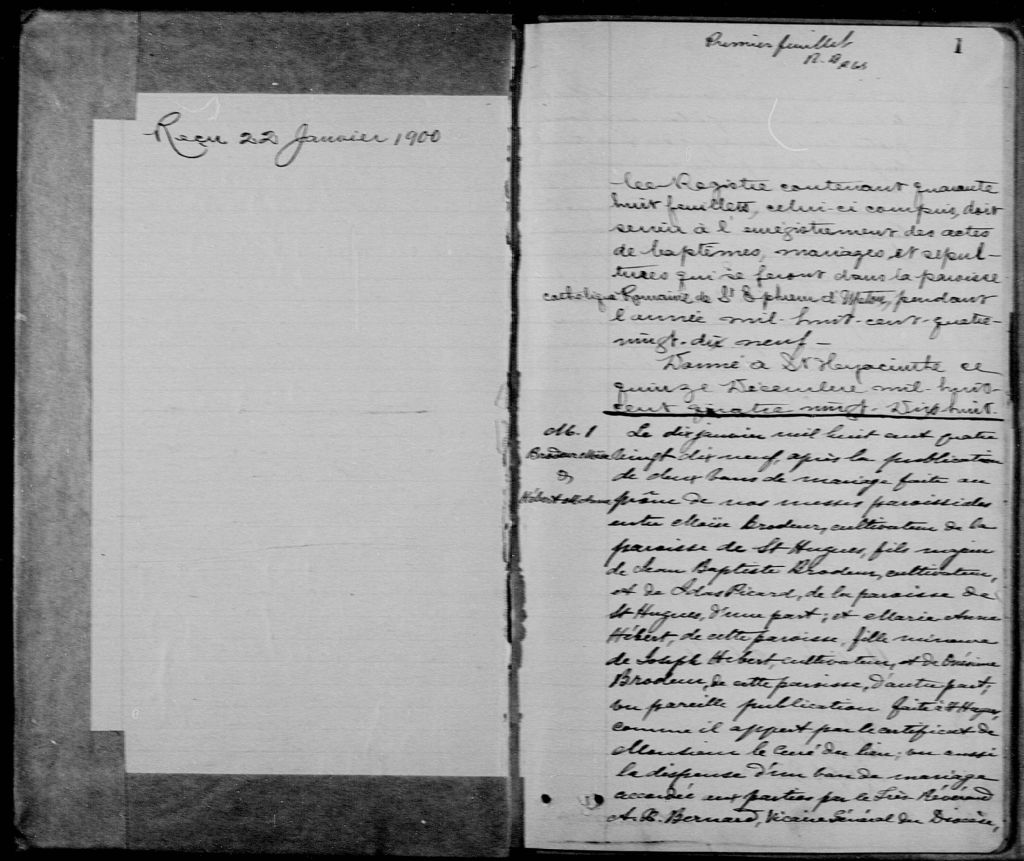 Reçu 22 Janvier 1900
Premier feuillet
1
Ce Registre contenant quarante
huit feuillets, celui-ci compris, doit
servir à l'enregistrement des actes
de baptêmes, mariages et sépul-
tures qui se feront dans la paroisse
catholique Romaine de St Ephrem d'Upton, pendant
l'année mil-huit-cent-quatre-
vingt-dix neuf —
Donné à St Hyacinthe ce
quinze Décembre mil-huit-
cent quatre vingt-Dix huit.
M. 1
Brodeur Moïse
&
Hébert M. Anna
Le dix janvier mil huit cent quatre
vingt dix neuf, après la publication
de deux bans de mariage faite au
prône de nos messes paroissiales
entre Moïse Brodeur, cultivateur de la
paroisse de St Hugues, fils majeur
de Jean Baptiste Brodeur, cultivateur,
et de Picard, de la paroisse de
St Hugues, d'une part; et Maria Anna
Hébert, de cette paroisse, fille mineure
de Joseph Hébert, cultivateur, et de Onésime
Brodeur, de cette paroisse, d'autre part;
vu pareille publication faite à St Hugues,
comme il appert par le certificat de
Monsieur le Curé du lieu; vu aussi
la dispense d'un ban de mariage
accordée aux parties par le Très Révérend
A. X. Bernard, Vicaire Général du Diocèse,